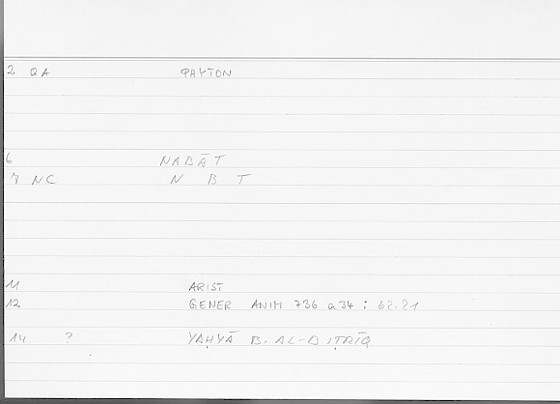 2 QA PAYTON
6 NABĀT
7 NC N B T
11 ARIST
12 GENER ANIM 736 a34 : 62.21
14 ? YAḤYĀ B. AL-BIṬRĪQ